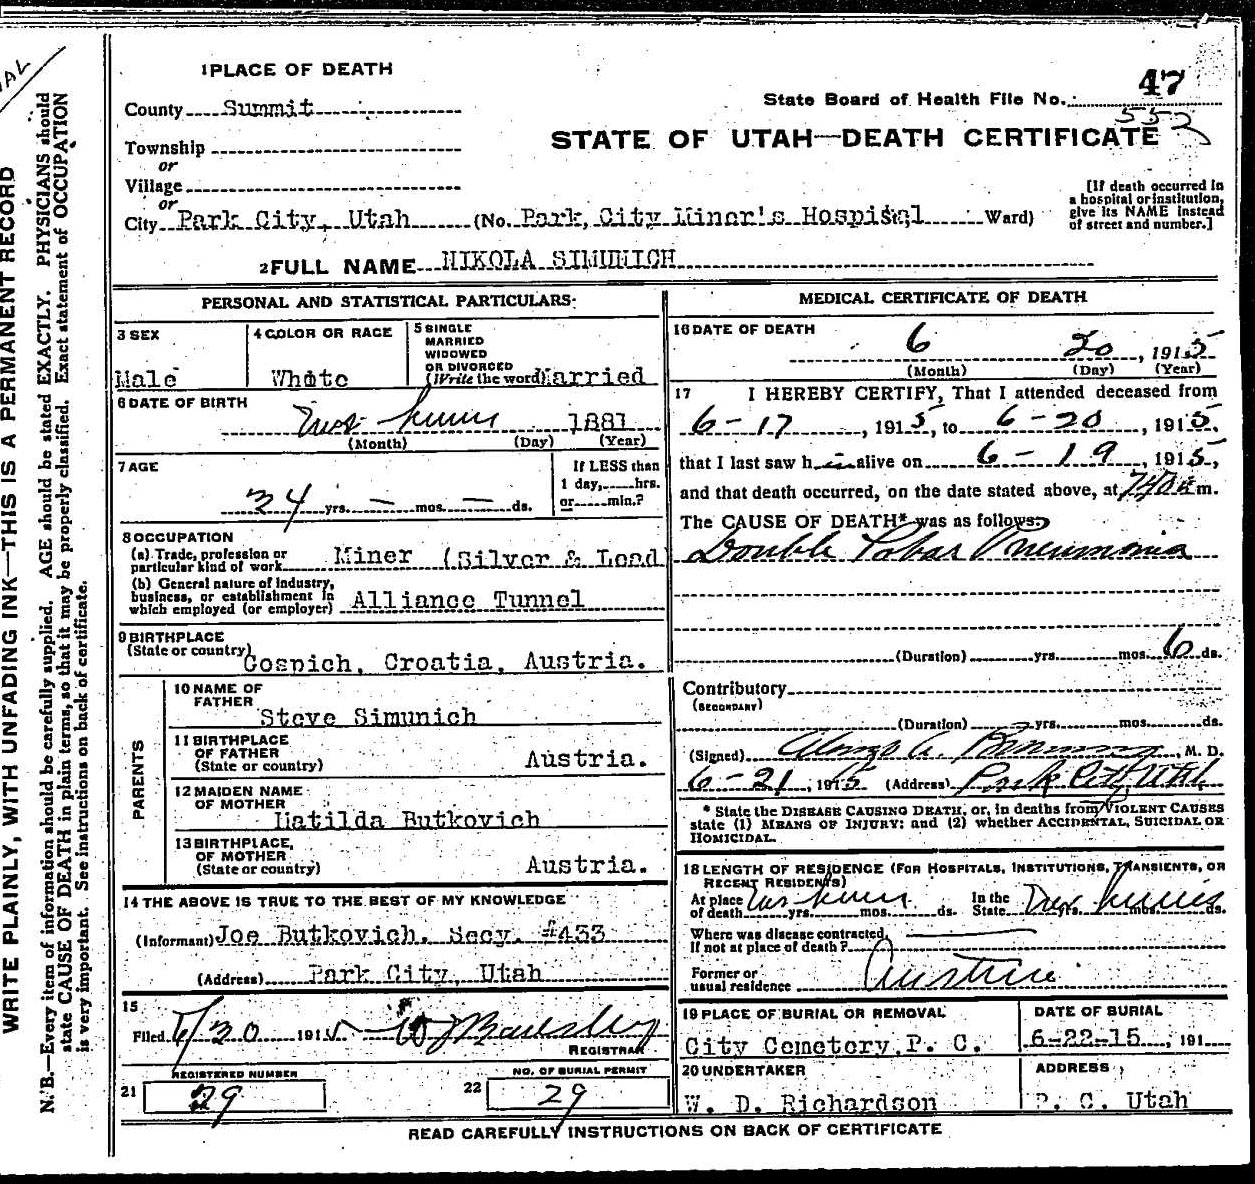 1 PLACE OF DEATH
County Summit
Township
or
Village
or
City Park City, Utah (No. Park, City Miner's Hospital Ward)
47
State Board of Health File No.
552
STATE OF UTAH—DEATH CERTIFICATE
[If death occurred in
a hospital or institution,
give its NAME instead
of street and number.]
2 FULL NAME NIKOLA SIMUNICH
PERSONAL AND STATISTICAL PARTICULARS
3 SEX
Male
4 COLOR OR RACE
White
5 SINGLE
MARRIED
WIDOWED
OR DIVORCED
(Write the word) Married
6 DATE OF BIRTH
1881
(Month) (Day) (Year)
7 AGE
34 yrs. — mos. — ds.
If LESS than
1 day, hrs.
or min.?
8 OCCUPATION
(a) Trade, profession or
particular kind of work Miner (Silver & Lead
(b) General nature of industry,
business, or establishment in
which employed (or employer) Alliance Tunnel
9 BIRTHPLACE
(State or country) Gospich, Croatia, Austria.
PARENTS
10 NAME OF
FATHER
Steve Simunich
11 BIRTHPLACE
OF FATHER
(State or country) Austria.
12 MAIDEN NAME
OF MOTHER
Matilda Butkovich
13 BIRTHPLACE,
OF MOTHER
(State or country) Austria.
14 THE ABOVE IS TRUE TO THE BEST OF MY KNOWLEDGE
(Informant) Joe Butkovich, Secy. #433
(Address) Park City, Utah
15
Filed 6/30 1915
REGISTRAR
21
REGISTERED NUMBER
29
22
NO. OF BURIAL PERMIT
29
MEDICAL CERTIFICATE OF DEATH
16 DATE OF DEATH
6 20, 1915
(Month) (Day) (Year)
17 I HEREBY CERTIFY, That I attended deceased from
6-17, 1915, to 6-20, 1915,
that I last saw h im alive on 6-19, 1915,
and that death occurred, on the date stated above, at m.
The CAUSE OF DEATH* was as follows:
Double Lobar Pneumonia
(Duration) yrs. mos. 6 ds.
Contributory
(SECONDARY)
(Duration) yrs. mos. ds.
(Signed) M. D.
6-21, 1915 (Address) Park City, Utah
* State the DISEASE CAUSING DEATH, or, in deaths from VIOLENT CAUSES
state (1) MEANS OF INJURY; and (2) whether ACCIDENTAL, SUICIDAL OR
HOMICIDAL.
18 LENGTH OF RESIDENCE (FOR HOSPITALS, INSTITUTIONS, TRANSIENTS, OR
RECENT RESIDENTS)
At place
of death yrs. mos. ds.
In the
State yrs. mos. ds.
Where was disease contracted,
If not at place of death?
Former or
usual residence Austria
19 PLACE OF BURIAL OR REMOVAL
City Cemetery P. C.
DATE OF BURIAL
6-22-15, 191
20 UNDERTAKER
W. D. Richardson
ADDRESS
P. C. Utah
READ CAREFULLY INSTRUCTIONS ON BACK OF CERTIFICATE
WRITE PLAINLY, WITH UNFADING INK—THIS IS A PERMANENT RECORD
N. B.—Every item of information should be carefully supplied. AGE should be stated EXACTLY. PHYSICIANS should
state CAUSE OF DEATH in plain terms, so that it may be properly classified. Exact statement of OCCUPATION
is very important. See instructions on back of certificate.